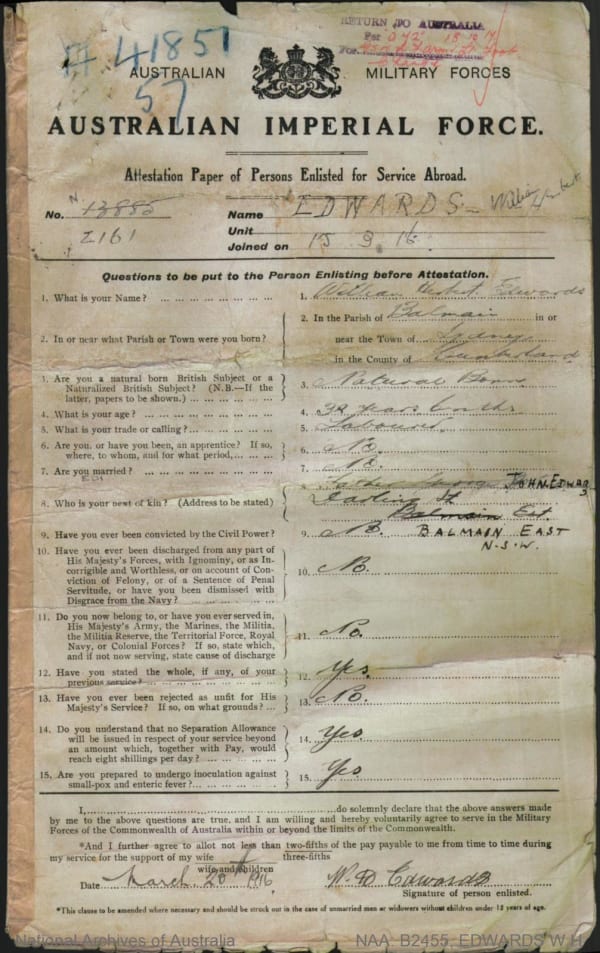 # 41851
57
RETURN TO AUSTRALIA
Per D 42 15 12 17
For
AUSTRALIAN MILITARY FORCES
AUSTRALIAN IMPERIAL FORCE.
Attestation Paper of Persons Enlisted for Service Abroad.
No. N 13885 Name EDWARDS - William Herbert
2161 Unit
Joined on 15 3 16.
Questions to be put to the Person Enlisting before Attestation.
1. What is your Name? 1. William Herbert Edwards
2. In or near what Parish or Town were you born? 2. In the Parish of Balmain in or
near the Town of Sydney
in the County of Cumberland
3. Are you a natural born British Subject or a
Naturalized British Subject? (N.B.—If the
latter, papers to be shown.) 3. Natural Born
4. What is your age? 4. years
5. What is your trade or calling? 5. Labourer
6. Are you, or have you been, an apprentice? If so,
where, to whom, and for what period, 6. No.
7. Are you married? 7. No.
8. Who is your next of kin? (Address to be stated) 8. Father George JOHN EDWARDS
Darling St
Balmain Est.
9. Have you ever been convicted by the Civil Power? 9. No. BALMAIN EAST
N.S.W.
10. Have you ever been discharged from any part of
His Majesty's Forces, with Ignominy, or as In-
corrigible and Worthless, or on account of Con-
viction of Felony, or of a Sentence of Penal
Servitude, or have you been dismissed with
Disgrace from the Navy? 10. No.
11. Do you now belong to, or have you ever served in,
His Majesty's Army, the Marines, the Militia,
the Militia Reserve, the Territorial Force, Royal
Navy, or Colonial Forces? If so, state which,
and if not now serving, state cause of discharge 11. No.
12. Have you stated the whole, if any, of your
previous service? 12. Yes.
13. Have you ever been rejected as unfit for His
Majesty's Service? If so, on what grounds? 13. No.
14. Do you understand that no Separation Allowance
will be issued in respect of your service beyond
an amount which, together with Pay, would
reach eight shillings per day? 14. Yes
15. Are you prepared to undergo inoculation against
small-pox and enteric fever? 15. Yes
I, do solemnly declare that the above answers made
by me to the above questions are true, and I am willing and hereby voluntarily agree to serve in the Military
Forces of the Commonwealth of Australia within or beyond the limits of the Commonwealth.
*And I further agree to allot not less than two-fifths of the pay payable to me from time to time during
three-fifths
my service for the support of my wife
wife and children
Date March 20th 1916 W. H Edwards
Signature of person enlisted.
*This clause to be amended where necessary and should be struck out in the case of unmarried men or widowers without children under 18 years of age.
National Archives of Australia NAA: B2455, EDWARDS W H